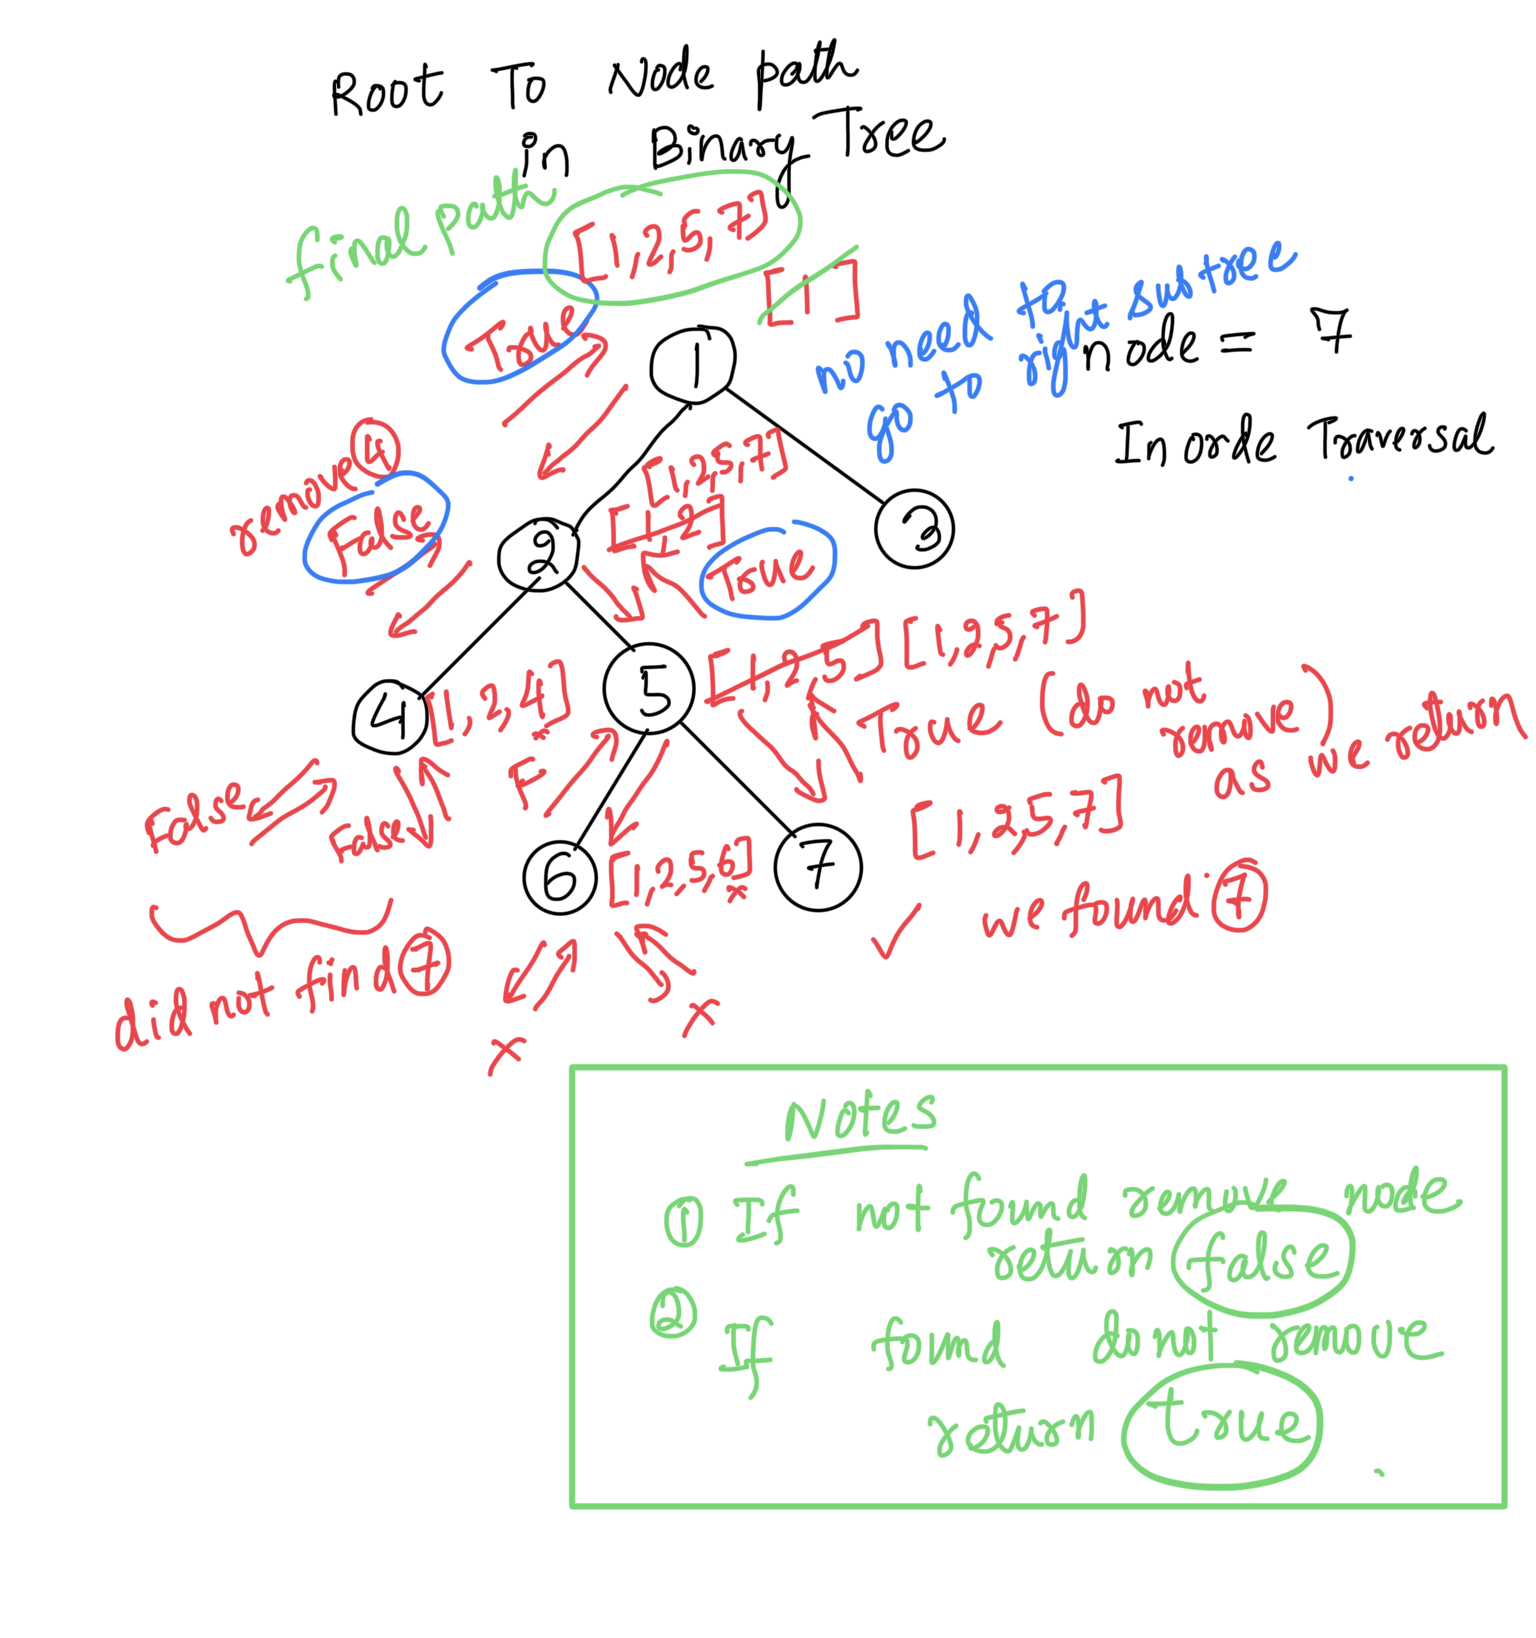 Root To Node path
in Binary Tree
final path [1,2,5,7]
True
[1]
no need to
go to right subtree
node = 7
Inorde Traversal
1
remove 4
False
[1,2,5,7]
[1,2]
True
2
3
4
[1,2,4]
x
5
[1,2,5] [1,2,5,7]
True (do not
remove)
as we return
False
False
F
6
[1,2,5,6]
x
7
[1,2,5,7]
✓ we found 7
did not find 7
x
x
Notes
① If not found remove node
return false
② If found do not remove
return true